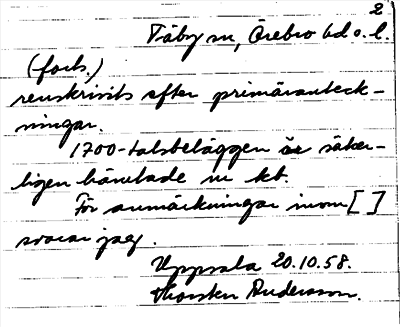 2
Täby sn, Örebro hd o. l.
(forts.)
renskrivits efter primäranteck-
ningar.
1700-talsbeläggen är säker-
ligen hämtade ur kb.
För anmärkningar inom [ ]
svarar jag.
Uppsala 20.10.58.
Thorsten Andersson.